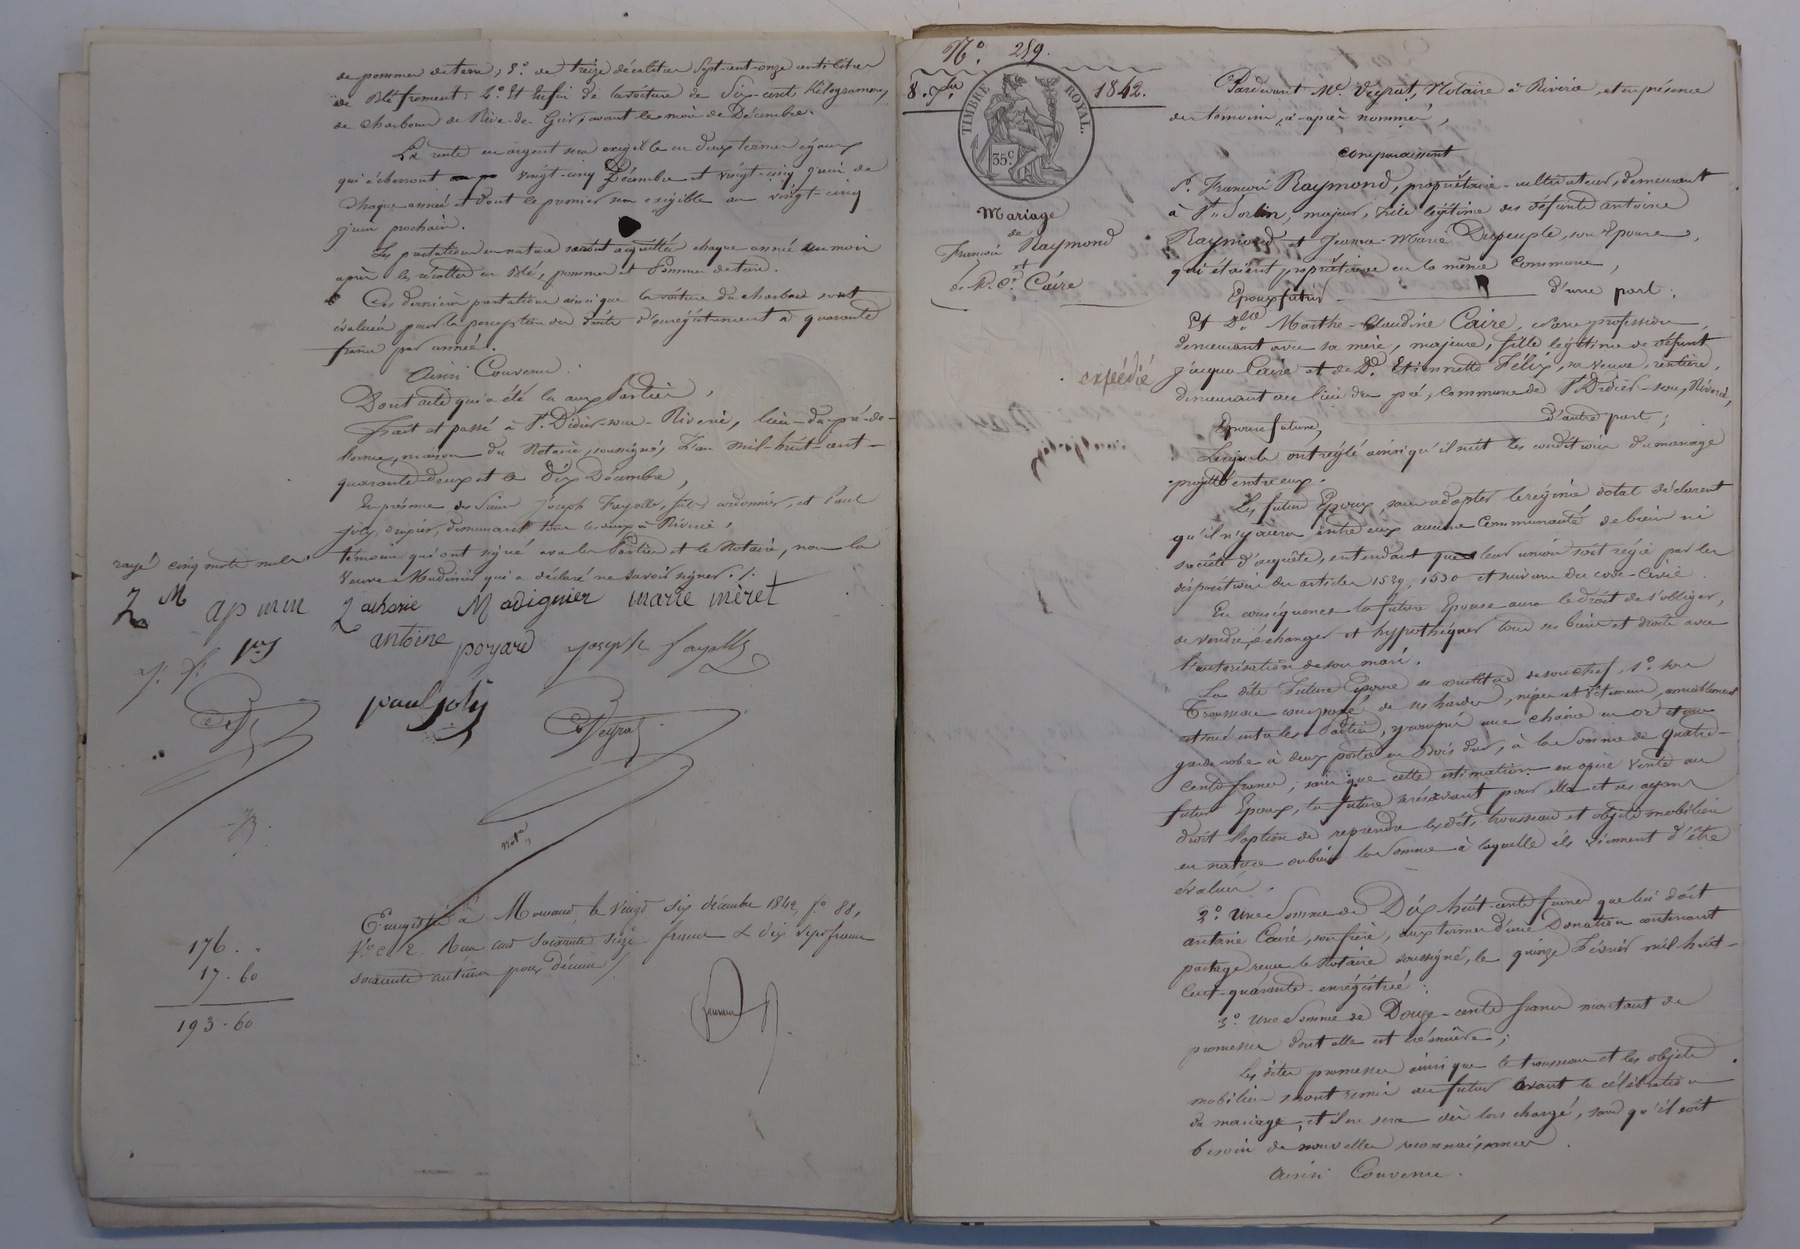 de pommes de terre; 3.° de treize décalitres sept-cent-onze centilitres
de Blé froment: 4.° Et Enfin de la voiture de Six-cent Kilogrammes
de charbon de Rive-de-Gier, avant le mois de Décembre.
La rente en argent sera exigible en deux termes égaux
qui écherront vingt-cinq Décembre et vingt-cinq juin de
chaque année et dont le premier sera exigible au vingt-cinq
juin prochain.
Les prestations en nature seront acquittées chaque année au mois
après les récoltes en Blé, pommes et Pommes de terre.
Ces dernières prestations ainsi que la voiture du charbon sont
évaluées pour la perception des droits d'enregistrement à quarante
francs par année.
Ainsi Convenu.
Dont acte qui a été lu aux Parties,
Fait et passé à S.t Didier-sous-Riverie, lieu-du-pré-de-
maison du Notaire soussigné, L'an mil-huit-cent-
quarante-deux et le Dix Décembre,
En présence des Sieurs Joseph Fayolle, fils, cordonnier, et Paul
Joly, demeurant tous les deux à Riverie,
Témoins qui ont signé avec les Parties et le Notaire, non la
Veuve qui a déclaré ne savoir signer ./.
rayé cinq mots nuls
Zacharie Madignier marie mèret
antoine poyard joseph fayolle
paul joly
Veyrat
Not.re
Enregistré à Mornant, le vingt six décembre 1842, f.° 88,
v.° c. 2. Reçu cent soixante seize francs & dix sept francs
soixante centimes pour décime
176. .
17. 60
193. 60
N.° 289.
8. X.bre 1842.
TIMBRE ROYAL.
35.c
Mariage
de
François Raymond
et
de M.e C.e Caire
expédié
Pardevant M.e Veyrat, Notaire à Riverie, et en présence
des témoins ci-après nommés,
comparaissent
S.r François Raymond, propriétaire-cultivateur, demeurant
à S.t Sorlin, majeur, fils légitime des défunts antoine
Raymond et Jeanne-Marie Dupeuple, son Epouse,
qui étaient propriétaires en la même Commune,
Epoux futur d'une part;
Et D.lle Marthe-Claudine Caire, sans profession,
demeurant avec sa mère, majeure, fille légitime de défunt
jacques Caire et de D.e Etiennette Félix, sa veuve, rentière,
demeurant au lieu du pré, commune de S.t Didier-sous-Riverie,
Epouse future, d'autre part;
Lesquels ont réglé ainsi qu'il suit les conditions du mariage
projetté entre eux.
Les futurs Epoux, sans adopter le régime dotal déclarent
qu'il n'y aura entre eux aucune Communauté de biens ni
société d'acquêts, entendant que leur union soit régie par les
dispositions des articles 1529, 1530 et suivans du code-Civil.
En conséquence la future Epouse aura le droit de s'obliger,
de vendre, échanger et hypothéquer tous ses biens et droits avec
l'autorisation de son mari.
La dite future Epouse se constitue de son chef, 1.° son
Trousseau composé de ses hardes, nipes et vêtemens, amiablement
estimé entre les Parties, y compris une chaine en or et une
garde-robe à deux portes en bois dur, à la Somme de quatre-
cents francs; sans que cette estimation en opère vente au
futur Epoux, la future réservant pour elle et ses ayans
droit l'option de reprendre lesdits trousseau et objets mobiliers
en nature ou bien la Somme à laquelle ils viennent d'être
évalués.
2.° Une Somme de Dix huit-cents francs que lui doit
antoine Caire, son frère, aux termes d'une Donation contenant
partage reçue le Notaire soussigné, le quinze Février mil-huit-
Cent-quarante-enregistrée;
3.° Une Somme de Douze-cents francs montant de
promesses dont elle est créancière;
Les dites promesses ainsi que le trousseau et les objets
mobiliers seront remis au futur avant la célébration
du mariage, et il en sera dès lors chargé, sans qu'il soit
besoin de nouvelles reconnaissances.
Ainsi Convenu.